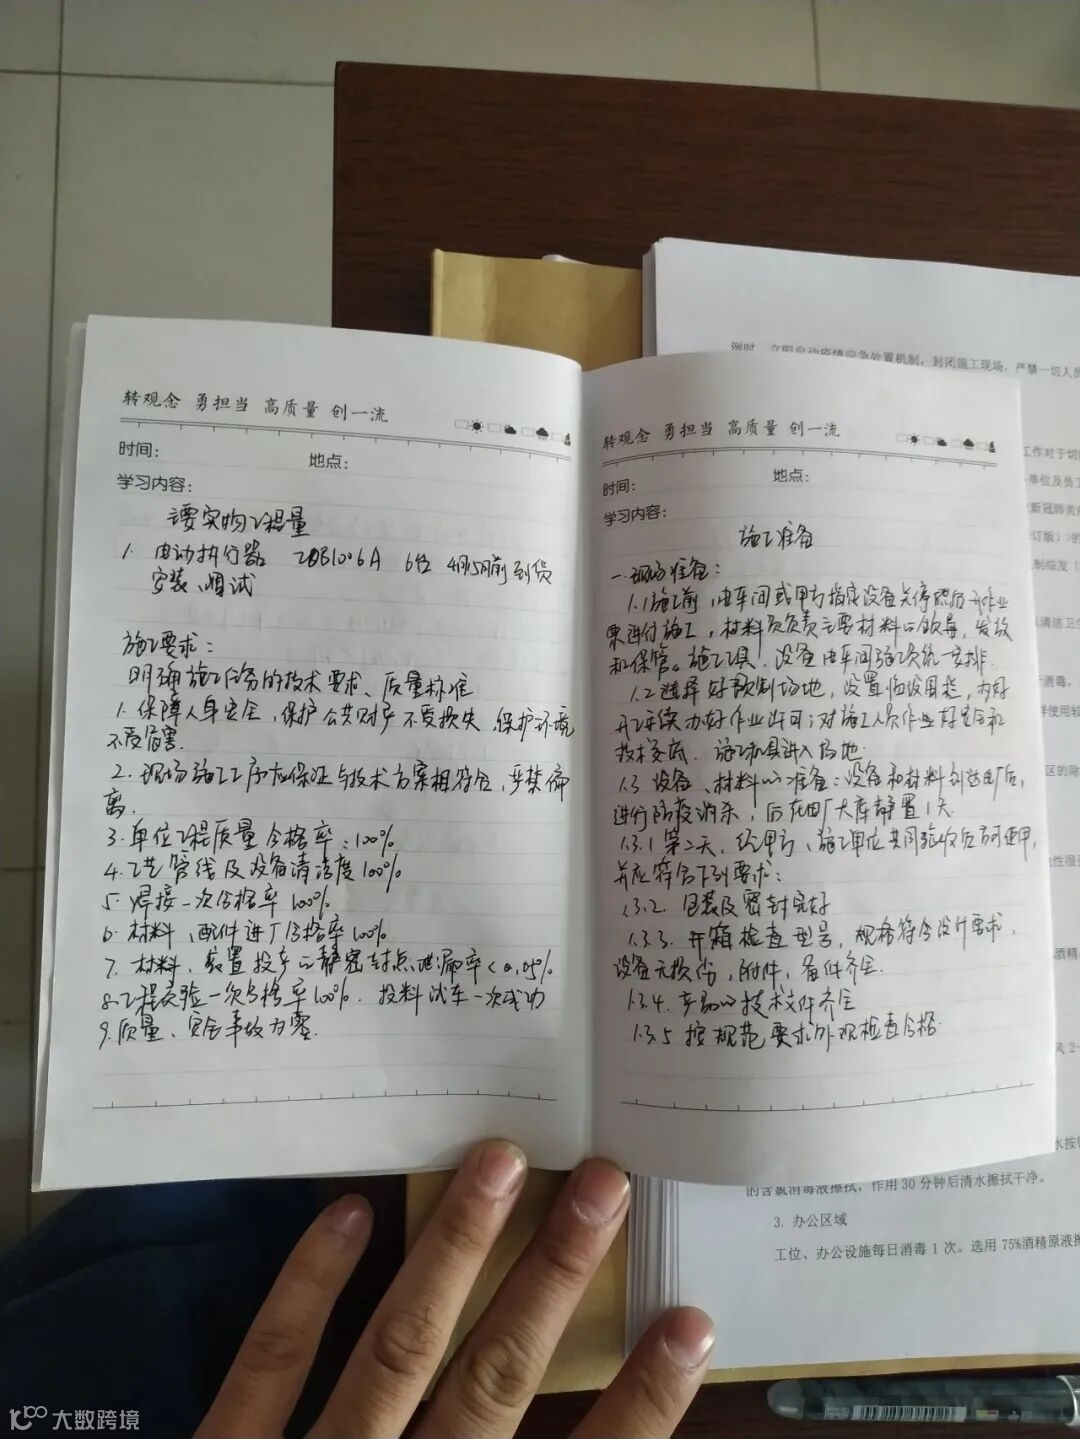 转观念 勇担当 高质量 创一流
时间：
地点：
学习内容：
主要实物工程量
1. 电动执行器 20B1006A 6台 4月15日前到货
安装、调试
施工要求：
明确施工任务的技术要求、质量标准
1. 保障人身安全，保护公共财产不受损失，保护环境
不受危害.
2. 现场施工工序应保证与技术方案相符合，严禁偏
离.
3. 单位工程质量合格率：100%
4. 工艺管线及设备清洁度100%
5. 焊接一次合格率100%
6. 材料、配件进厂合格率100%
7. 材料，装置投产的静密封点泄漏率<0.05%
8. 工程实验一次合格率100%. 投料试车一次成功
9. 质量、安全事故为零.
转观念 勇担当 高质量 创一流
时间：
地点：
学习内容：
施工准备
一.现场准备：
1.1 施工前，由车间或甲方指定设备关停然后开作业
票进行施工，材料员负责主要材料的领导，发放
和保管。施工工具、设备由车间统一安排.
1.2 选择好预制场地，设置临设围栏，办好
开工手续办好作业许可；对施工人员作业好安全和
技术交底. 施工机具进入场地.
1.3 设备、材料的准备：设备和材料到达电厂后，
进行防疫消杀，后在电厂大库静置1天.
1.3.1 第二天，经甲方、施工单位共同验收后方可使用，
并应符合下列要求：
1.3.2. 包装及密封完好
1.3.3. 开箱检查型号，规格符合设计要求，
设备无损伤，附件，备件齐全.
1.3.4. 产品的技术文件齐全
1.3.5 按规范要求外观检查合格.
例时，立即启动疫情应急处置机制，封闭施工现场，严禁一切人员
工作对于切
单位及员工
新冠肺炎
订版）》的
制综发（
清洁卫生
消毒，
样使用较
区的除
性很
酒精
风,2-
水按钮
的含氯消毒液擦拭，作用30分钟后清水擦拭干净。
3. 办公区域
工位、办公设施每日消毒1次。选用75%酒精原液擦
大数跨境